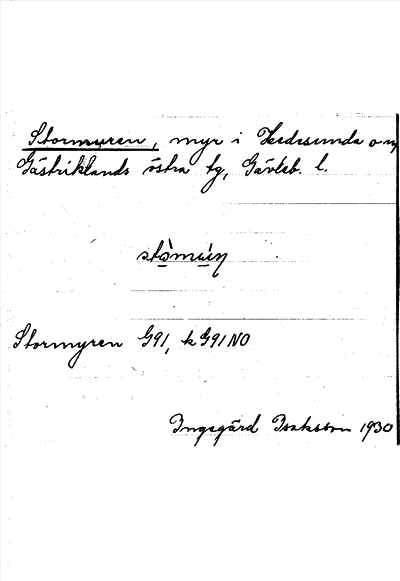 Stormyren, myr i Hedesunda
Gästriklands östra tg, Gävleb. l.
Stormyren G91, k G91 NO
Ingegärd Isaksson 1930